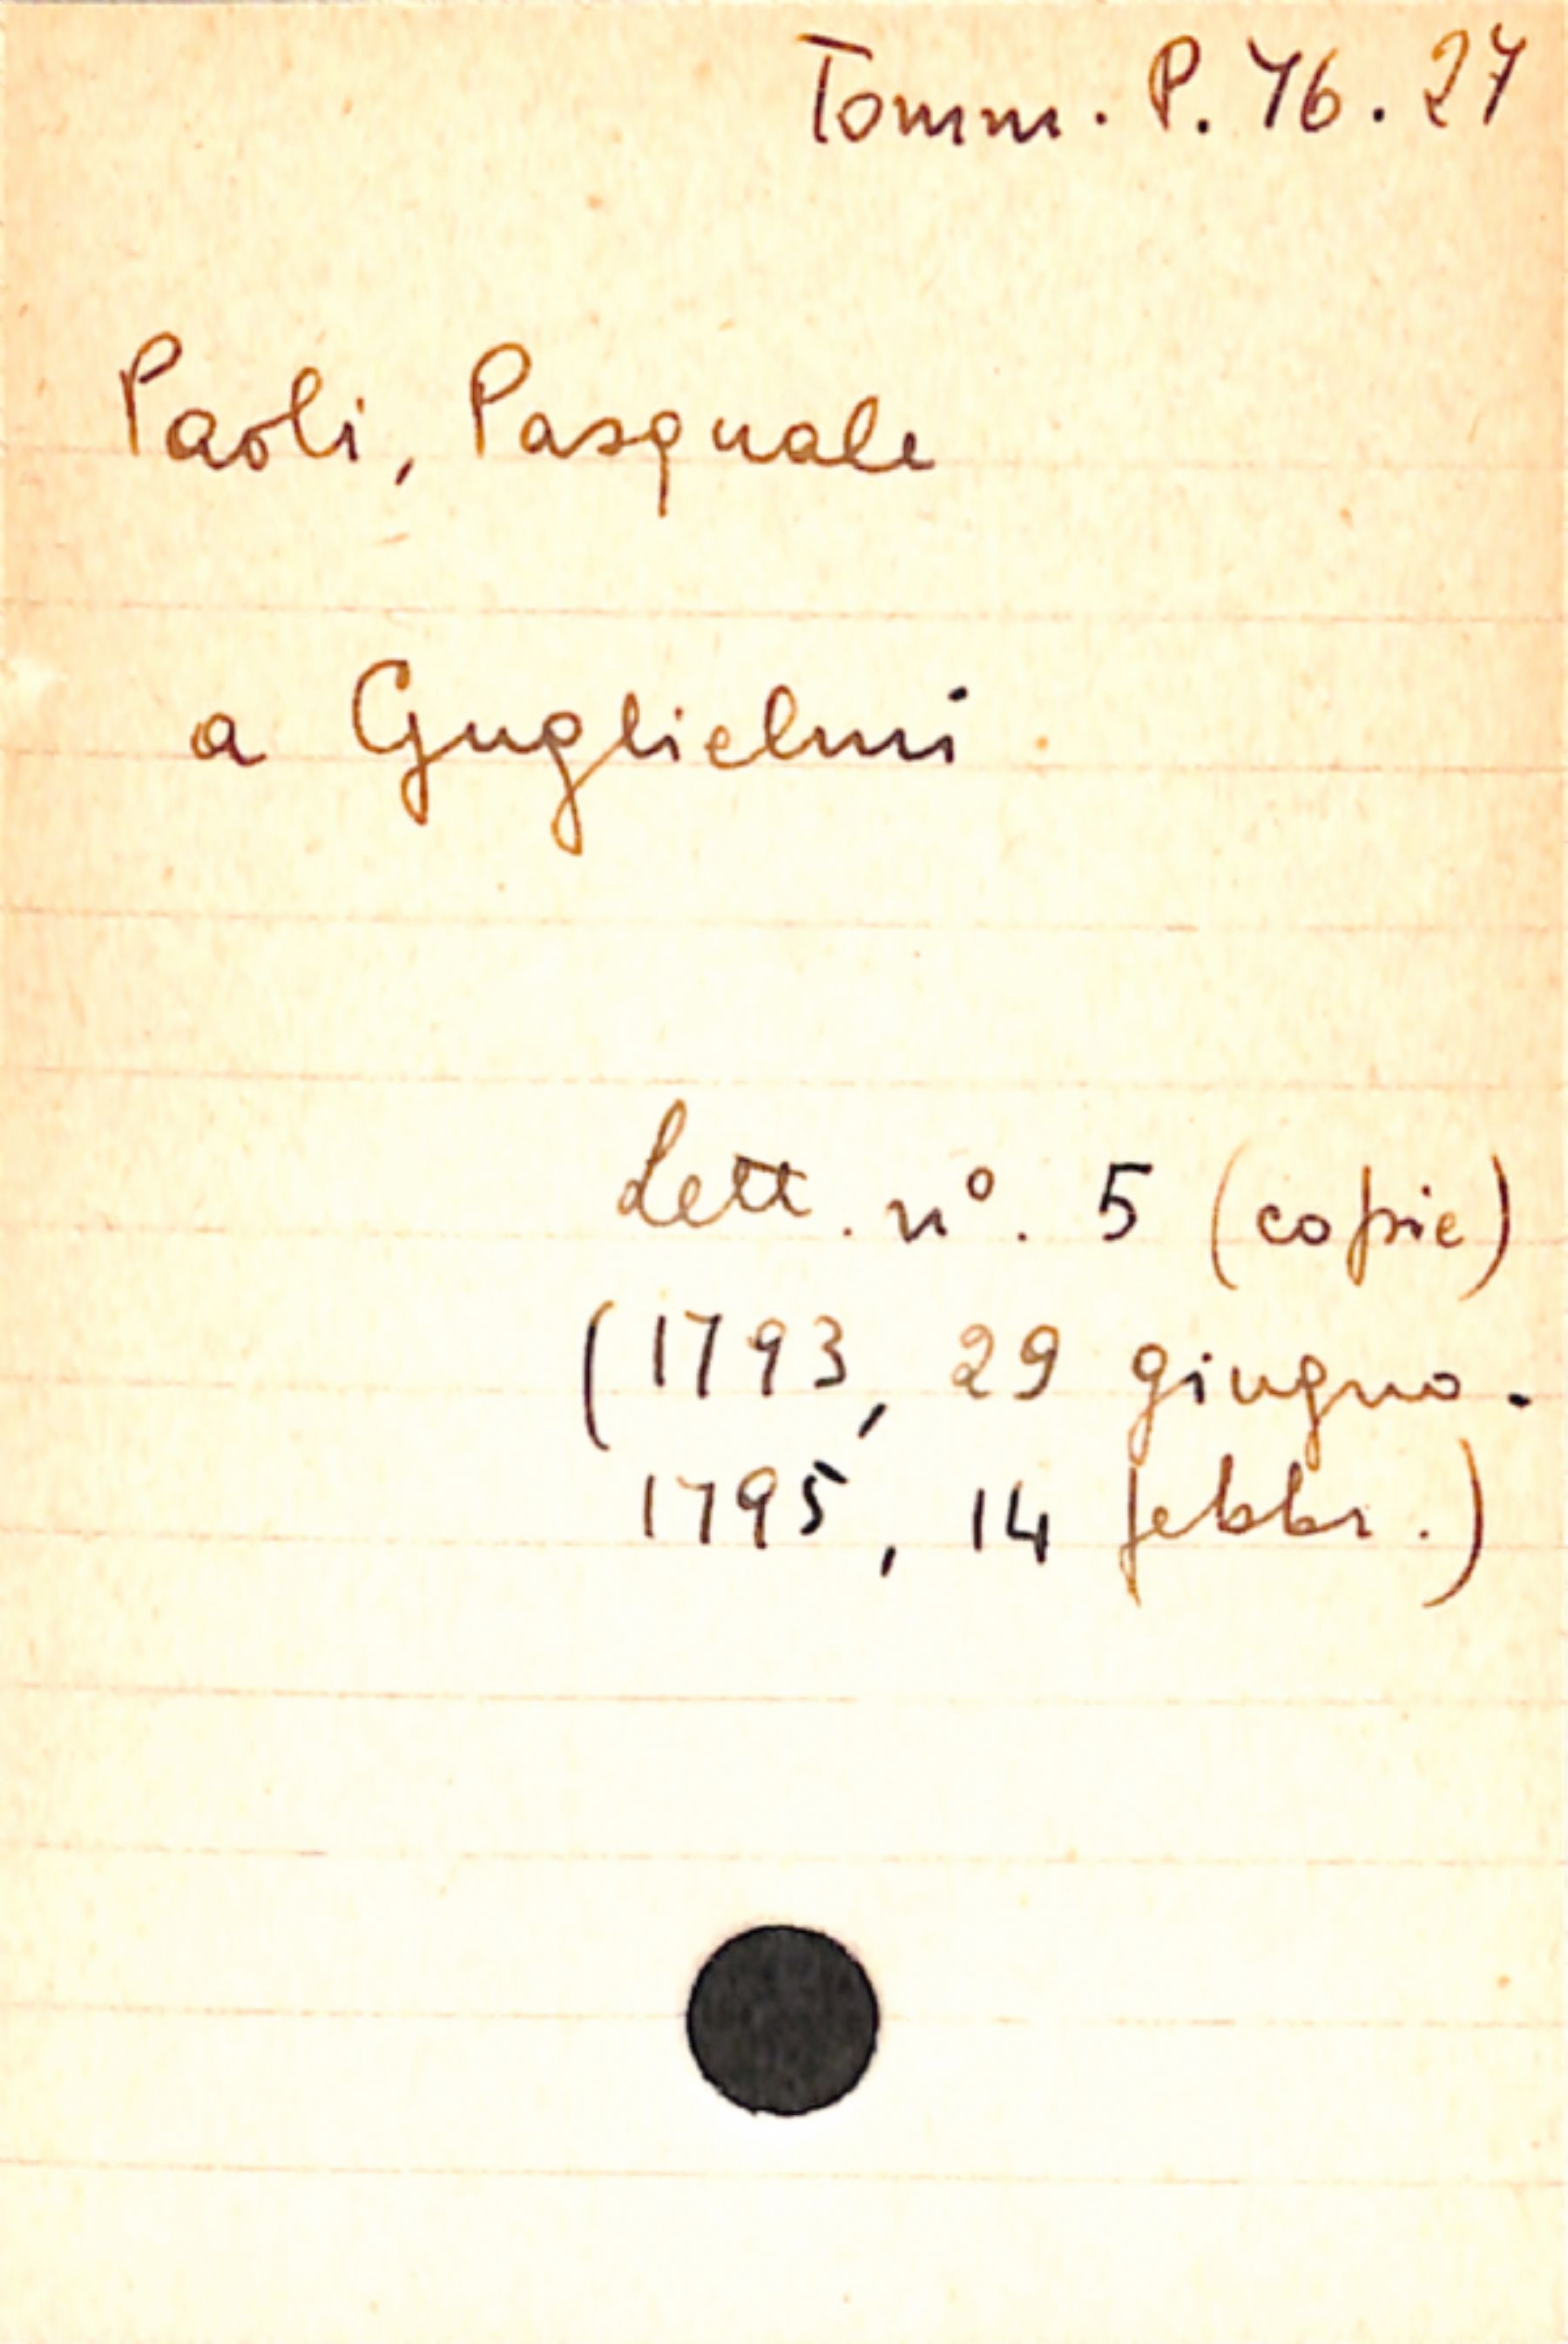 Tomm. P. 76. 27
Paoli, Pasquale
a Guglielmi
Lett. n°. 5 (copie)
(1793, 29 giugno.
1795, 14 febbr.)